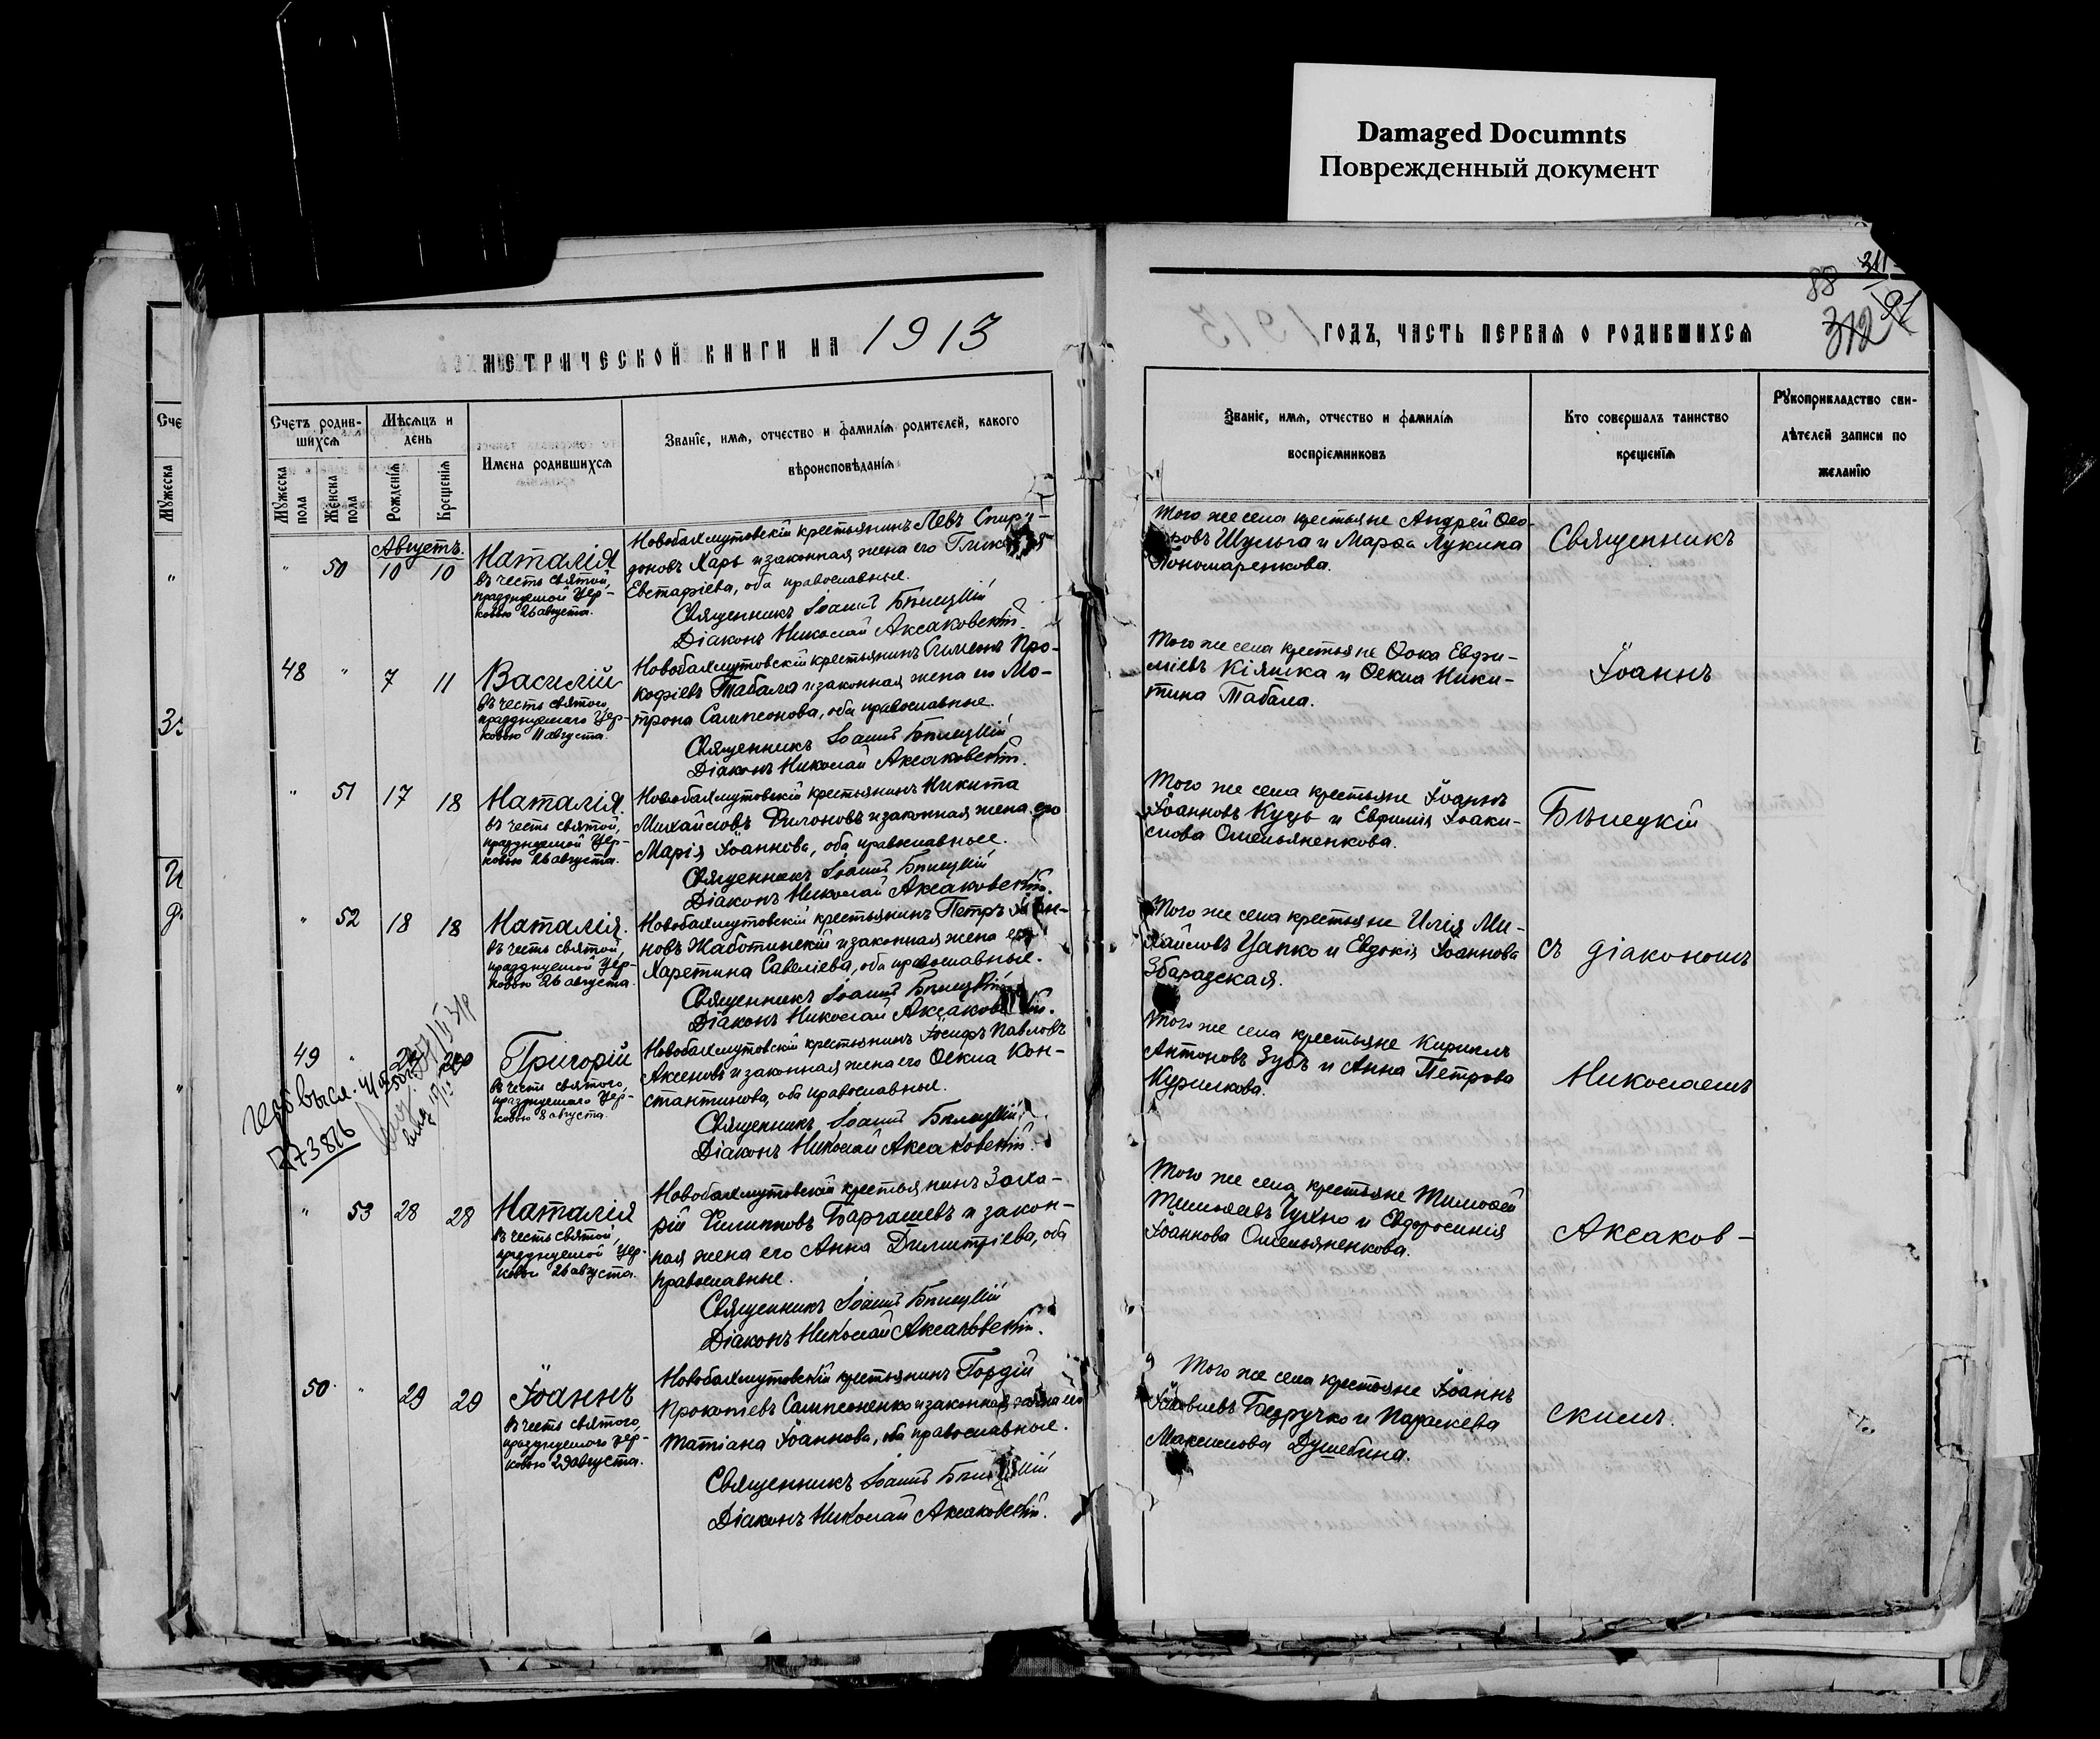 Damaged Documnts
Поврежденный документ
метрической книги на 1913
годъ, часть первая о родившихся
88
312
91
Счетъ родив-
шихся
Мѣсяцъ и
день
Мужеска
пола
Женска
пола
Рожденія
Крещенія
Имена родившихся
Званіе, имя, отчество и фамилія родителей, какого
вѣроисповѣданія
Званіе, имя, отчество и фамилія
воспріемниковъ
Кто совершалъ таинство
крещенія
Рукоприкладство сви-
дѣтелей записи по
желанію
Августъ.
" 50 10 10
Наталія
въ честь святой,
празднуемой Цер-
ковью 26 августа.
Новобахмутовскій крестьянинъ Левъ Спири-
доновъ Харь и законная жена его
Евстафіева, оба православные.
Священникъ Іоаннъ Бѣлецкій
Діаконъ Николай Аксаковскій.
Того же села крестьяне Андрей Ѳео-
Шульга и Марѳа Лукина
Пономаренкова.
48 " 7 11
Василій
въ честь святого,
празднуемаго Цер-
ковью 11 августа.
Новобахмутовскій крестьянинъ Симеонъ Про-
кофіевъ Табала и законная жена его Мо-
трона Сампсонова, оба православные.
Священникъ Іоаннъ Бѣлецкій
Діаконъ Николай Аксаковскій.
Того же села крестьяне Ѳока Евфи-
міевъ Кіяшка и Ѳекла Ники-
тина Табала.
" 51 17 18
Наталія.
въ честь святой,
празднуемой Цер-
ковью 26 августа.
Новобахмутовскій крестьянинъ Никита
Михайловъ Филоновъ и законная жена его
Марія Іоаннова, оба православные.
Священникъ Іоаннъ Бѣлецкій
Діаконъ Николай Аксаковскій.
Того же села крестьяне Іоаннъ
Іоанновъ Куць и Евфимія Іоаки-
мова Омельяненкова.
" 52 18 18
Наталія.
въ честь святой,
празднуемой Цер-
ковью 26 августа.
Новобахмутовскій крестьянинъ Петръ Іоан-
новъ Жаботинскій и законная жена его
Харетина Савеліева, оба православные.
Священникъ Іоаннъ Бѣлецкій
Діаконъ Николай Аксаковскій.
Того же села крестьяне Илія Ми-
хайловъ Цапко и Евдокія Іоаннова
Збарадская.
49 "
Григорій
въ честь святого,
празднуемаго Цер-
ковью 8 августа.
Новобахмутовскій крестьянинъ Іосифъ Павловъ
Аксеновъ и законная жена его Ѳекла Кон-
стантинова, оба православные.
Священникъ Іоаннъ Бѣлецкій
Діаконъ Николай Аксаковскій.
Того же села крестьяне Кириллъ
Антоновъ Зубъ и Анна Петрова
Курилкова.
" 53 28 28
Наталія
въ честь святой,
празднуемой Цер-
ковью 26 августа.
Новобахмутовскій крестьянинъ Заха-
рій Филипповъ Баргашевъ и закон-
ная жена его Анна Димитріева, оба
православные.
Священникъ Іоаннъ Бѣлецкій
Діаконъ Николай Аксаковскій.
Того же села крестьяне Тимоѳей
Тимоѳеевъ Чухно и Евфросинія
Іоаннова Омельяненкова.
50 " 29 29
Іоаннъ
въ честь святого,
празднуемаго Цер-
ковью 29 августа.
Новобахмутовскій крестьянинъ Гордій
Прокопіевъ Сампсоненко и законная жена его
Татіана Іоаннова, оба православные.
Священникъ Іоаннъ Бѣлецкій
Діаконъ Николай Аксаковскій.
Того же села крестьяне Іоаннъ
Бедручко и Параскева
Максимова Душебина.
Священникъ
Іоаннъ
Бѣлецкій
съ діакономъ
Николаемъ
Аксаков-
скимъ.